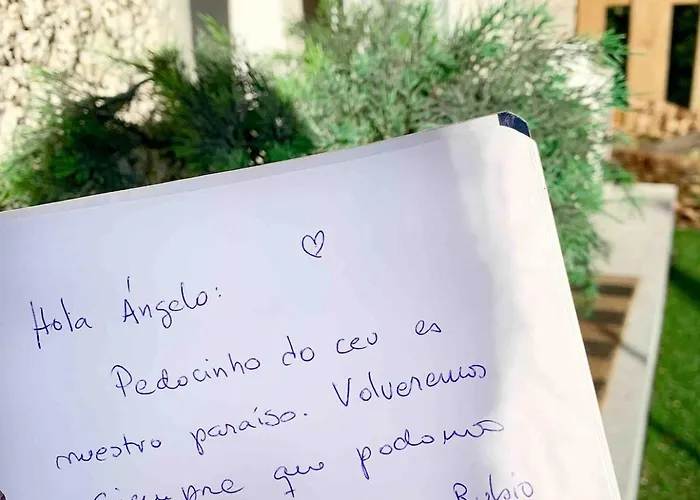 Hola Ángelo:
Pedocinho do ceu es
nuestro paraíso. Volveremos
siempre que podamos
Rubio